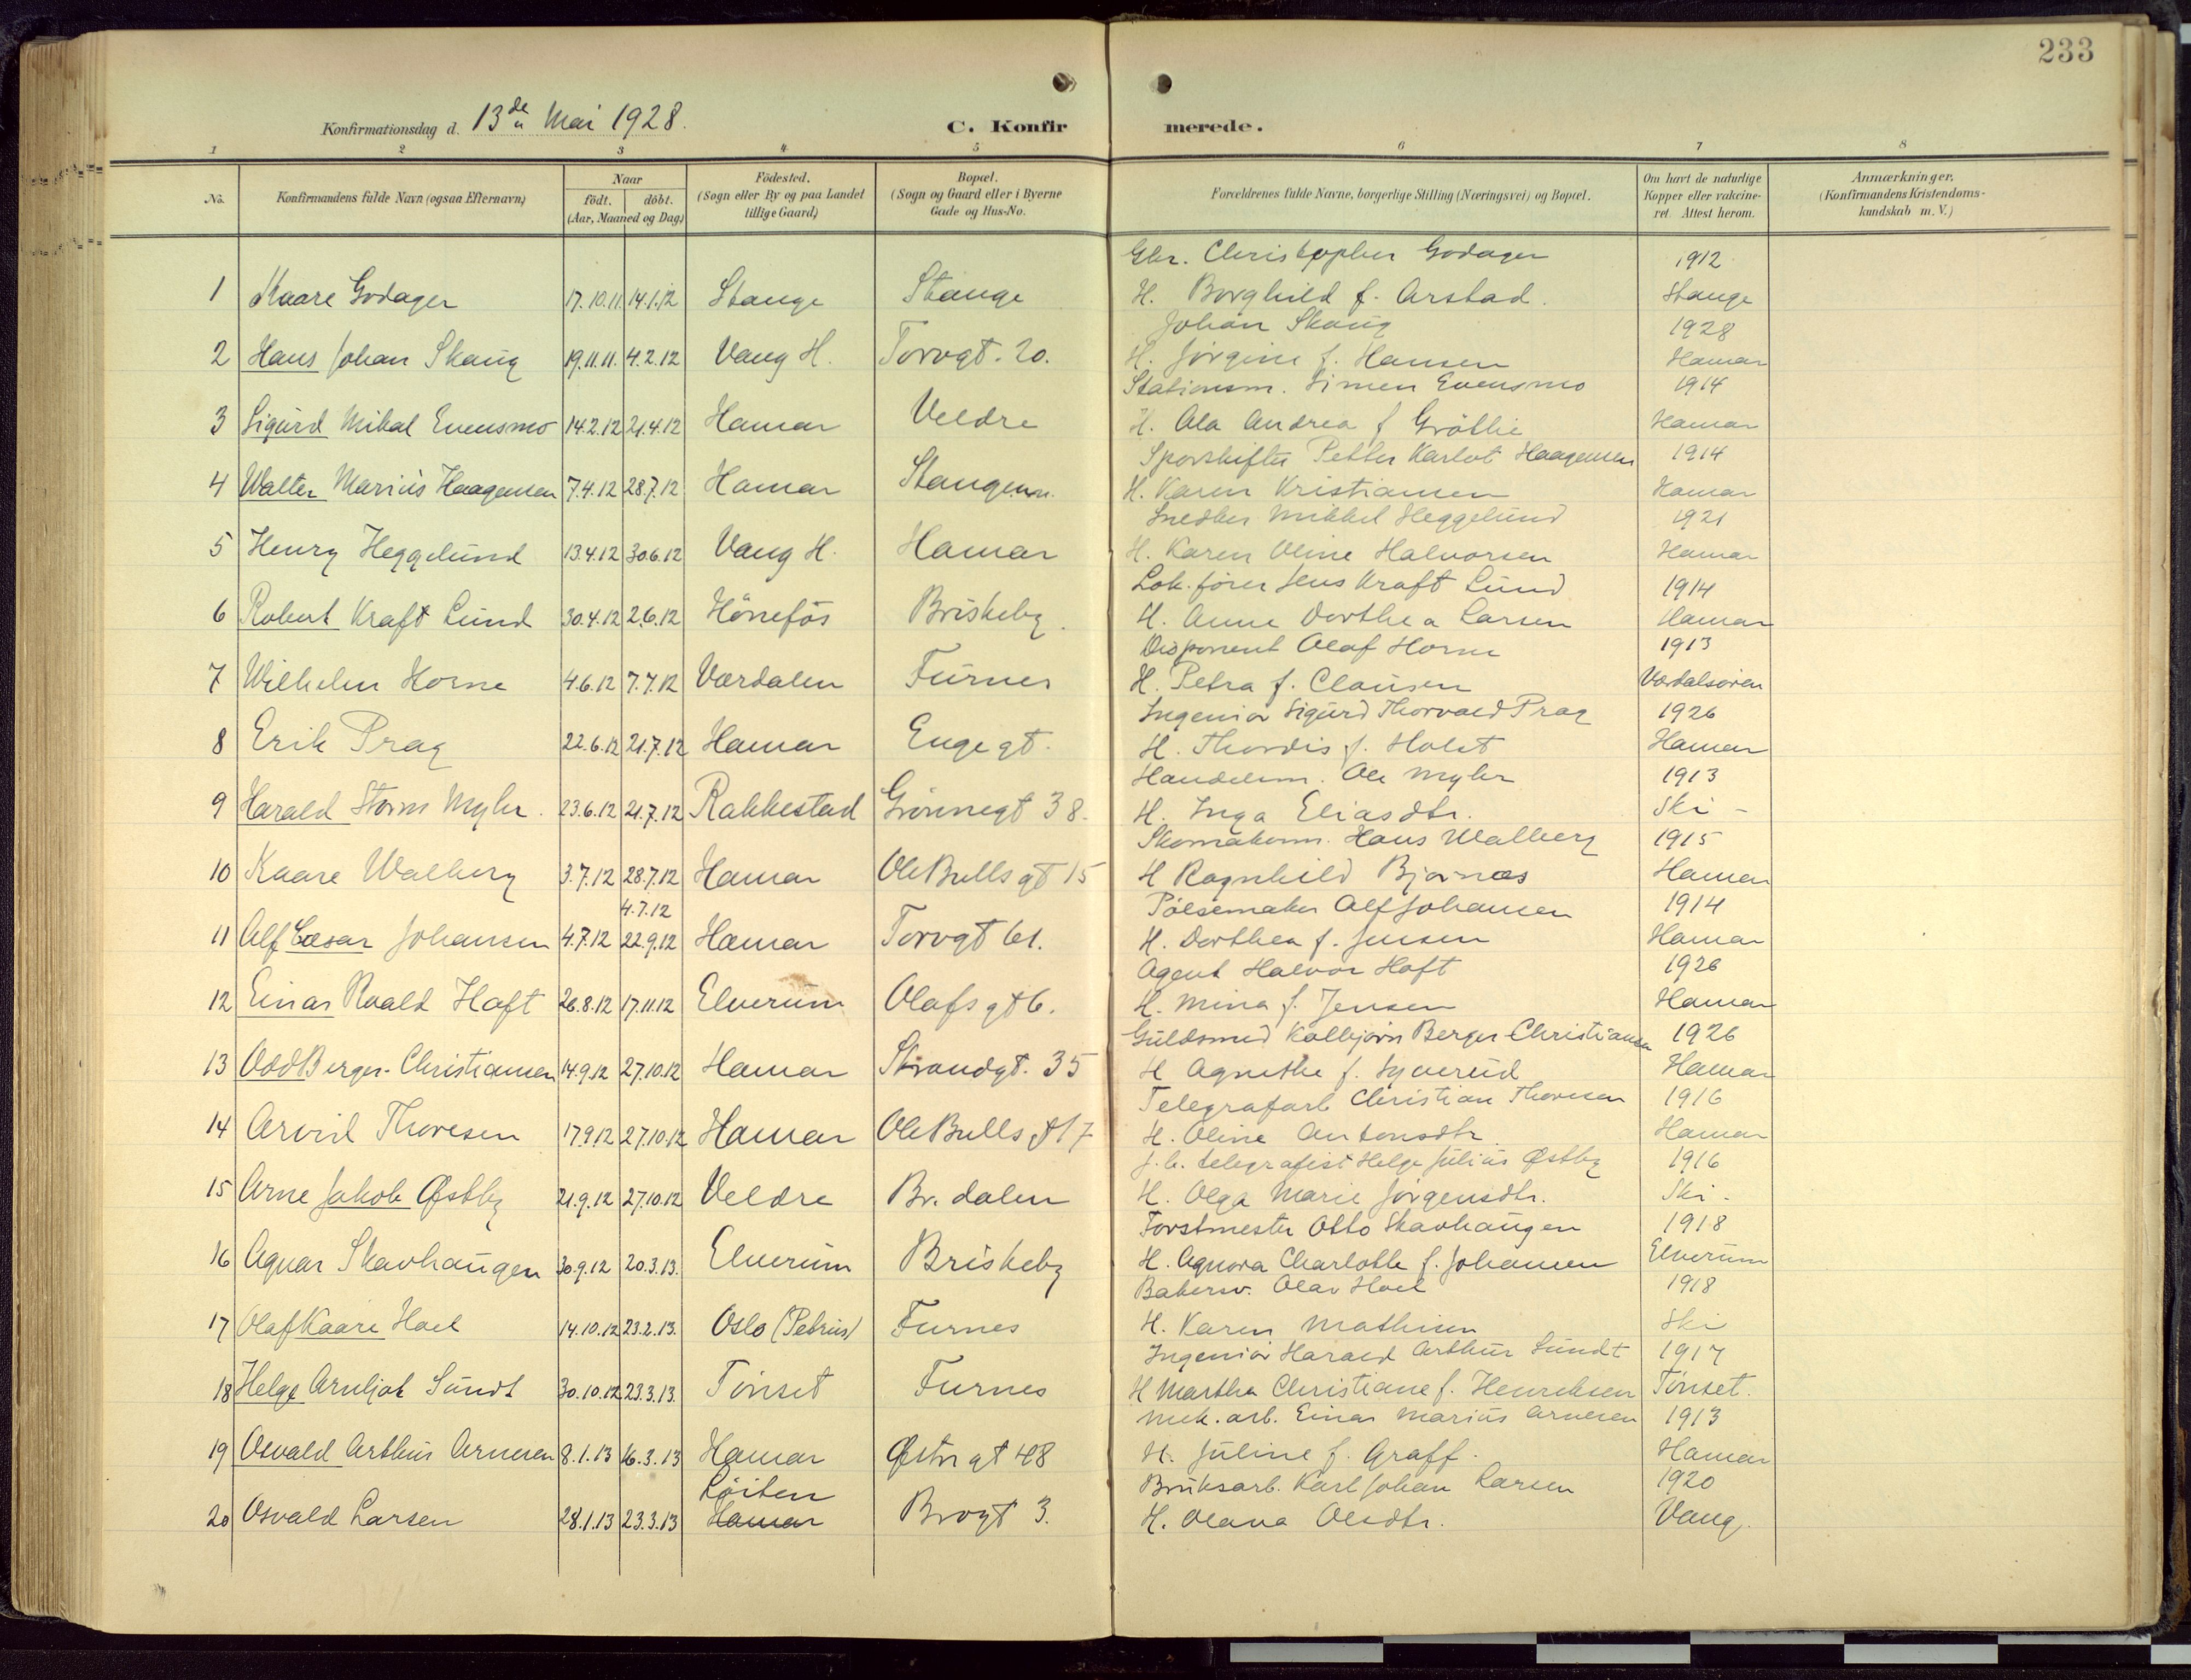 233
Konfirmationsdag d. 13de Mai 1928.
C. Konfir merede.
1 2 3 4 5 6 7 8
No.
Konfirmandens fulde Navn (ogsaa Efternavn)
Naar
födt. döbt.
(Aar, Maaned og Dag)
Födested.
(Sogn eller By og paa Landet
tillige Gaard)
Bopæl.
(Sogn og Gaard eller i Byerne
Gade og Hus-No.
Forældrenes fulde Navne, borgerlige Stilling (Næringsvei) og Bopæl.
Om havt de naturlige
Kopper eller vakcine-
ret Attest herom.
Anmærkninger.
(Konfirmandens Kristendoms-
kundskab m. V.)
Gbr. Christopher Godager 1912
1 Kaare Godager 17.10.11 14.1.12 Stange Stange H. Borghild f. Arstad. Stange
Johan Skaug 1928
2 Hans Johan Skaug 19.11.11. 4.2.12 Vang H. Torvgt. 20. H. Jørgine f. Hansen Hamar
Stationsm. Simen Evensmo 1914
3 Sigurd Mikal Evensmo 14.2.12 21.4.12 Hamar Veldre H. Ala Andrea f Grøtlie Hamar
Sporskifter Petter Karlot Haagensen 1914
4 Walter Marius Haagensen 7.4.12 28.7.12 Hamar H. Karen Kristiansen Hamar
Snedker Mikkel Heggelund 1921
5 Henry Heggelund 13.4.12 30.6.12 Vang H. Hamar H. Karen Oline Halvorsen Hamar
Lok.fører Jens Kraft Lund 1914
6 Robert Kraft Lund 30.4.12 2.6.12 Hönefos Briskeby. H. Anne Dorthea Larsen Hamar
Disponent Olaf Horne 1913
7 Wilhelm Horne 4.6.12 7.7.12 Værdalen Furnes H. Petra f. Clausen Værdalsøren
Ingeniør Sigurd Thorvald Prag 1926
8 Erik Prag 22.6.12 21.7.12 Hamar Engegt. H. Thordis f. Holst Hamar
Handelsm. Ole Myhr 1913
9 Harald Storm Myhr. 23.6.12 21.7.12 Rakkestad Grønnegt 38. H. Inga Eliasdtr. Ski -
Skomakerm. Hans Walberg 1915
10 Kaare Walberg 3.7.12 28.7.12 Hamar Ole Bulls gt 15 H Ragnhild Bjørnæs Hamar
4.7.12 Pølsemaker Alf Johansen 1914
11 Alf Cæsar Johansen 4.7.12 22.9.12 Hamar Torvgt 61. H. Dorthea f. Jensen Hamar
Agent Halvor Haft 1926
12 Einar Roald Haft 26.8.12 17.11.12 Elverum Olafsgt 6. H. Mina f. Jensen Hamar
Guldsmed Kolbjørn Berger-Christiansen 1926
13 Odd Berger-Christiansen 14.9.12 27.10.12 Hamar Strandgt. 35 H Agnethe f. Syverud Hamar
Telegrafarb Christian Thoresen 1916
14 Arvid Thoresen 17.9.12 27.10.12 Hamar Ole Bulls gt 17 H. Oline Antonsdtr. Hamar
J.b. telegrafist Helge Julius Østby 1916
15 Arne Jakob Østby 21.9.12 27.10.12 Veldre Br.dalen H. Olga Marie Jørgensdtr. Ski.
Forstmester Otto Skavhaugen 1918
16 Agnar Skavhaugen 30.9.12 20.3.13. Elverum Briskeby H. Agnora Charlotte f. Johansen Elverum
Bakersv. Olav Hoel 1918
17 Olaf Kaare Hoel 14.10.12 23.2.13. Oslo (Petrus) Furnes H. Karen Mathisen Ski
Ingeniør Harald Arthur Sundt 1917
18 Helge Arnljot Sundt 30.10.12 23.3.13. Tönset Furnes H Martha Christiane f. Henriksen Tönset.
Mek. arb. Einar Marius Arnesen 1913
19 Osvald Arthur Arnesen 8.1.13 16.3.13 Hamar Østregt 48 H. Juline f. Graff. Hamar
Löiten Bruksarb. Karl Johan Larsen 1920
20 Osvald Larsen 28.1.13 23.3.13 Hamar Brogt 3. H. Olava Olsdtr. Vang.